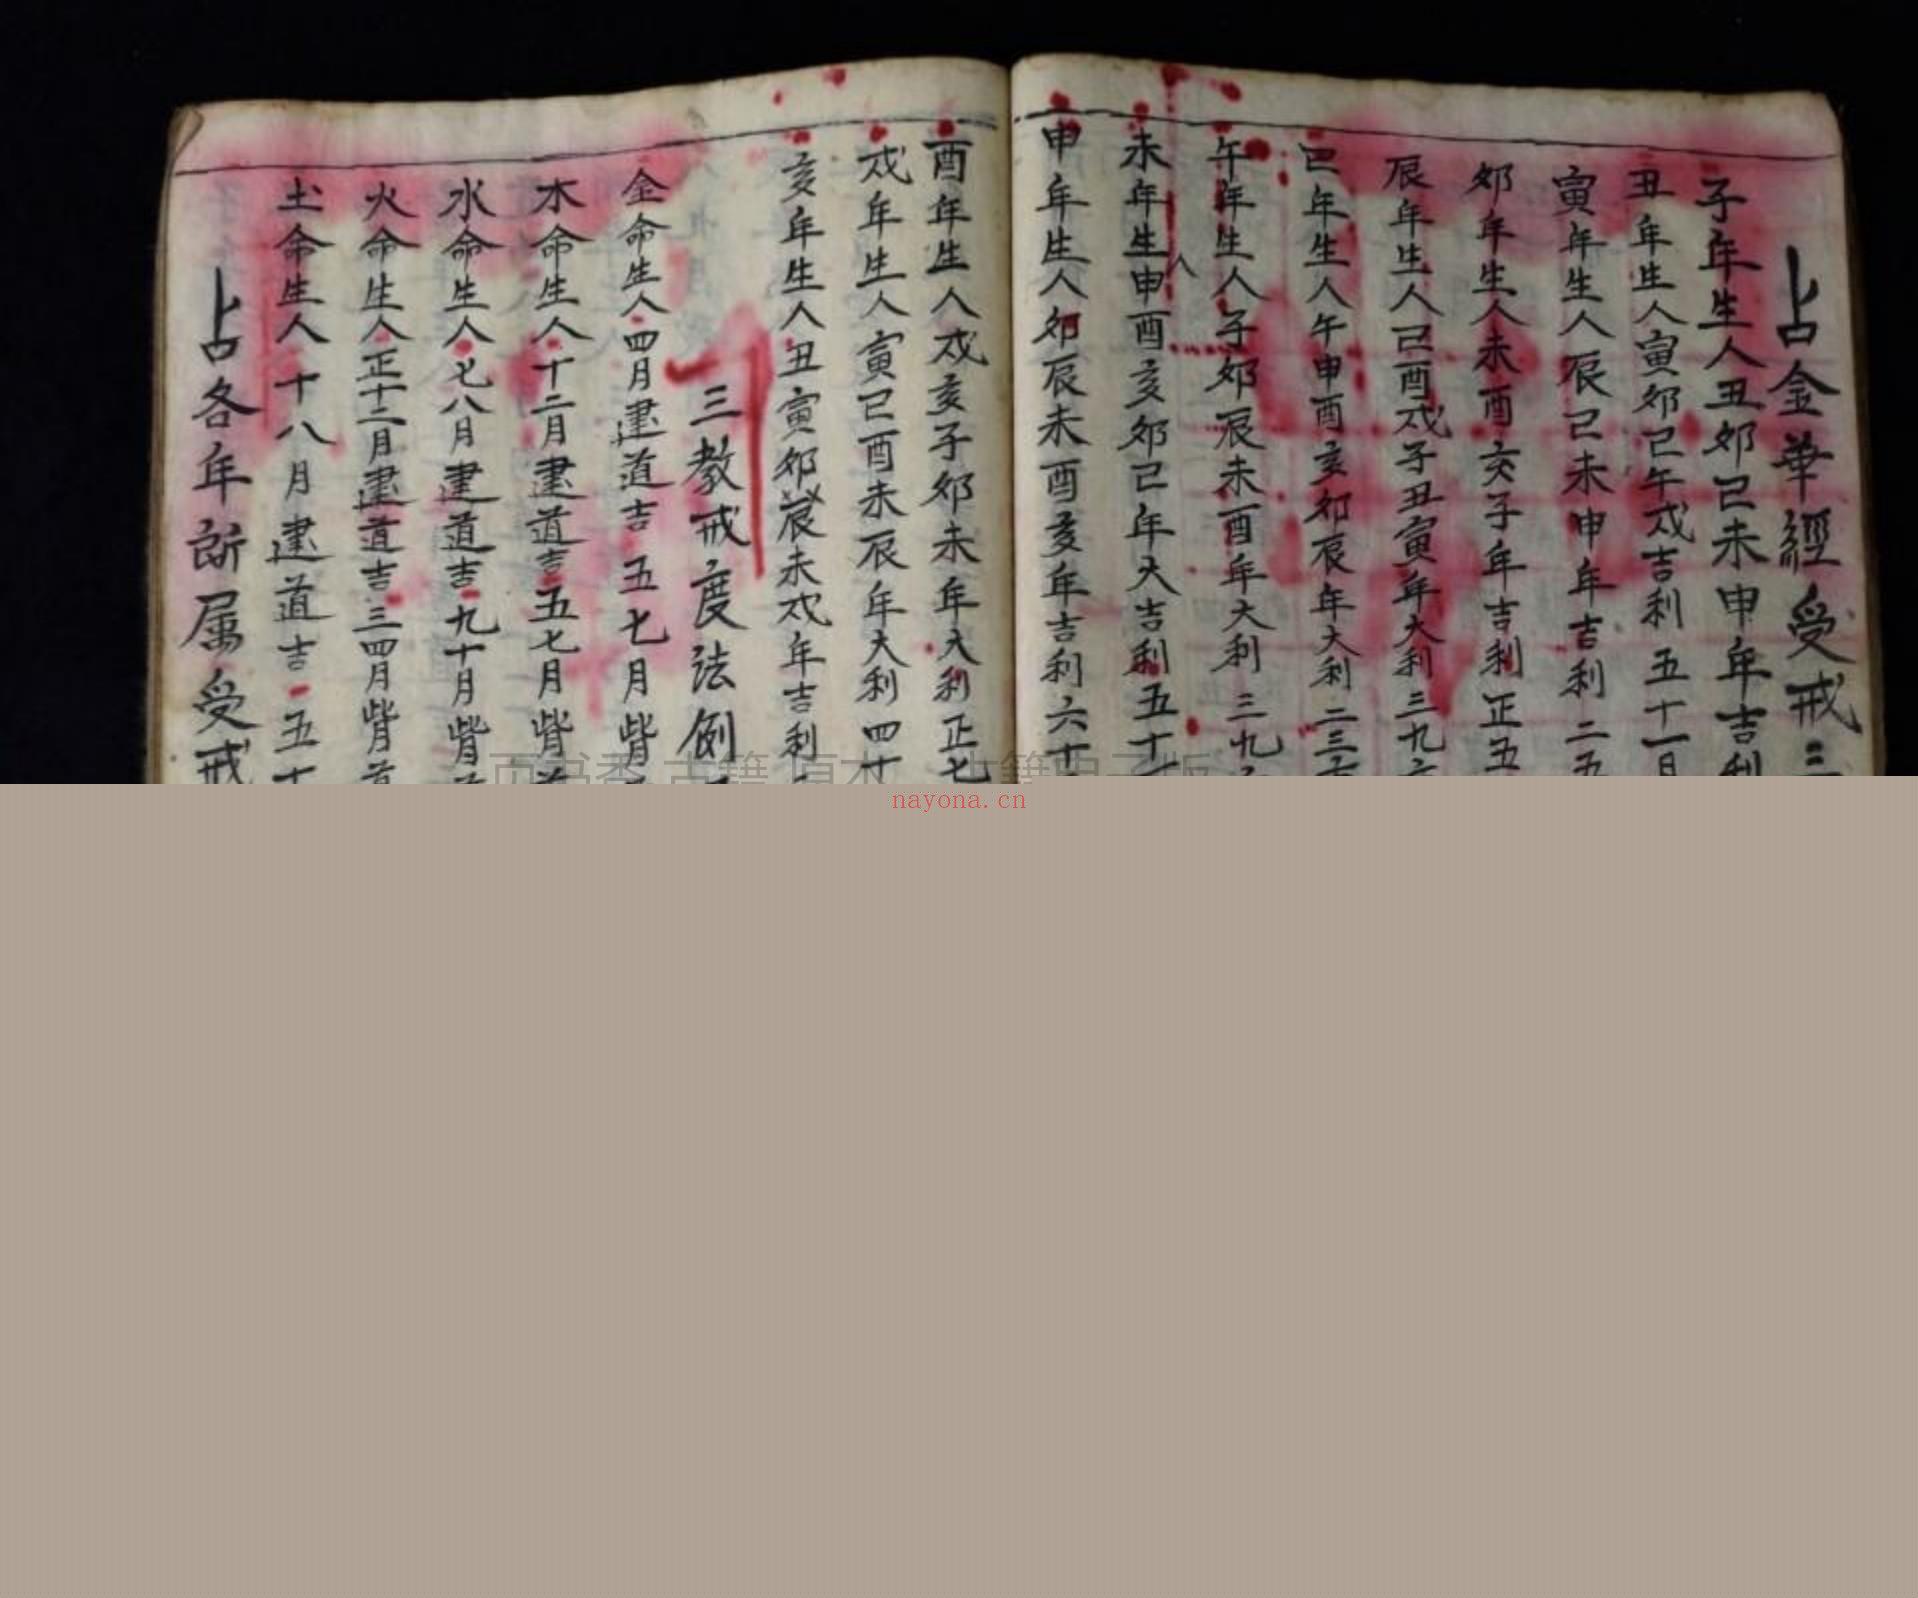 占金華經受戒三
子年生人丑卯己未申年吉利
丑年生人寅卯己午戌吉利 五十一月
寅年生人辰己未申年吉利 二五
卯年生人未酉亥子年吉利 正五
辰年生人己酉戌子丑寅年大利 三九六
巳年生人午申酉亥卯辰年大利 二三
午年生人子卯辰未酉年大利 三九
未年生人申酉亥卯己年大吉利 五十
申年生人卯辰未酉亥年吉利 六十
酉年生人戌亥子卯未年大利 正七
戌年生人寅己酉未辰年大利 四十
亥年生人丑寅卯辰未戌年吉利
三教戒度法例
金命生人四月建道吉 五七月
木命生人十二月建道吉 五七月
水命生人七八月建道吉 九十月
火命生人正十二月建道吉 三四月
土命生人十八月建道吉 五十
占各年所属受戒
nayona.cn